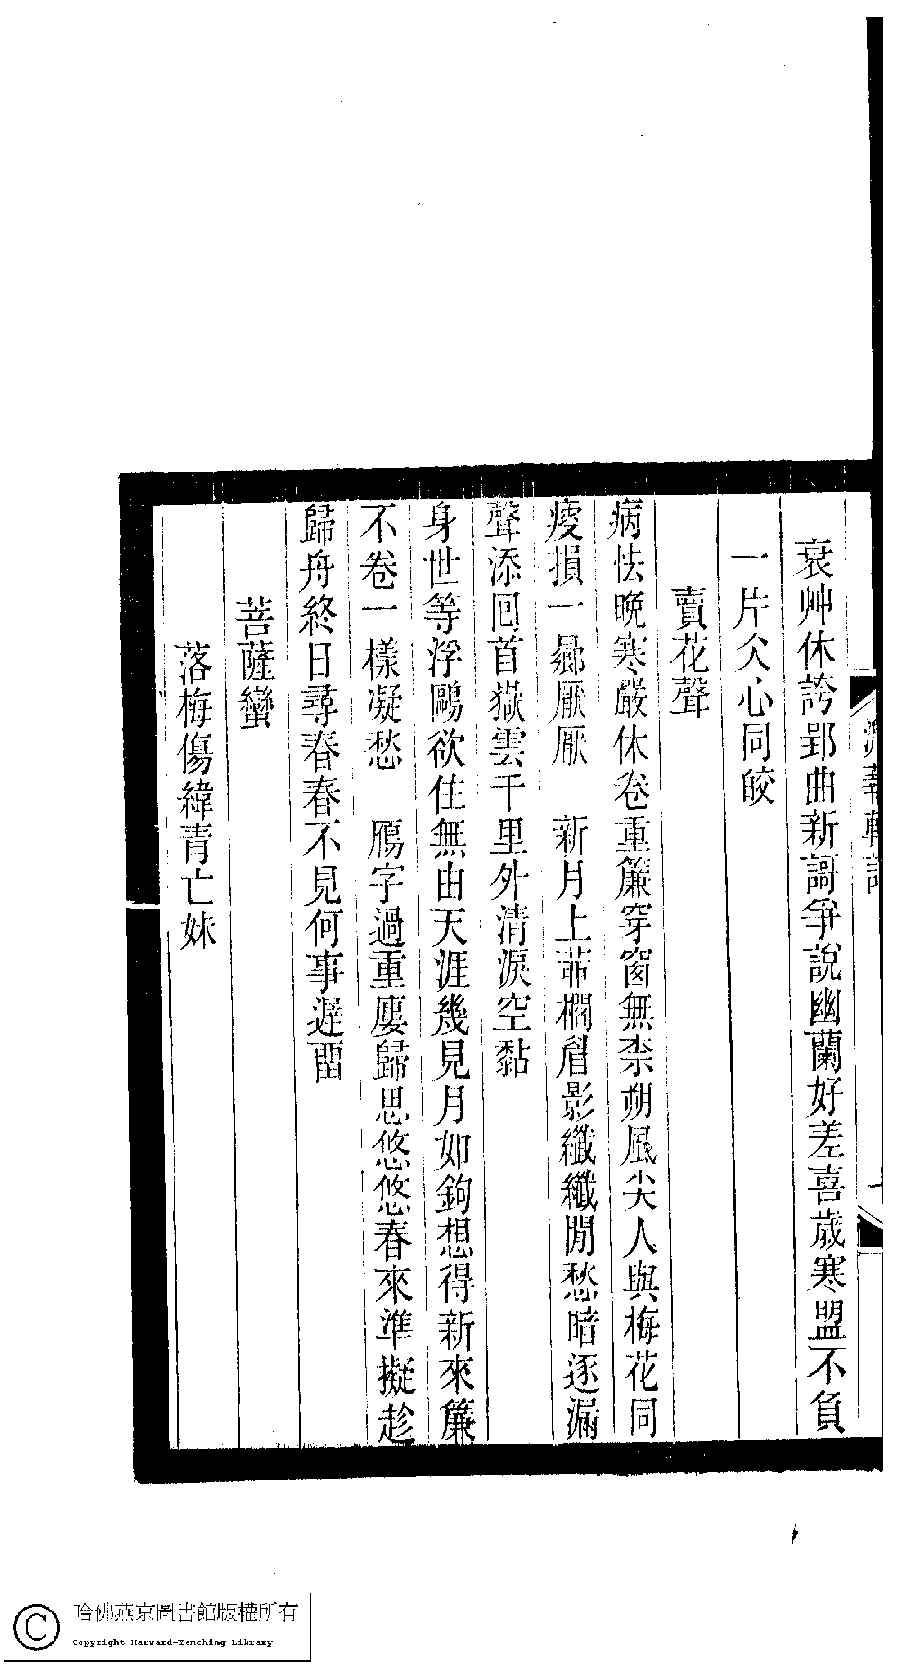 衰艸休誇郢曲新謌爭說幽蘭好差喜歲寒盟不負
一片仌心同皎
賣花聲
病怯晚寒嚴休卷重簾穿窗無柰朔風尖人與梅花同
瘦損一厭厭　新月上櫩眉影纖纖閒愁暗逐漏
聲添回首嶽雲千里外清淚空黏
身世等浮鷗欲住無由天涯幾見月如鉤想得新來簾
不卷一樣凝愁　鴈字過重廔歸思悠悠春來準擬趁
歸舟終日尋春春不見何事遲畱
菩薩蠻
落梅傷緯青亡妹
哈佛燕京圖書館版權所有
Copyright Harvard-Yenching Library